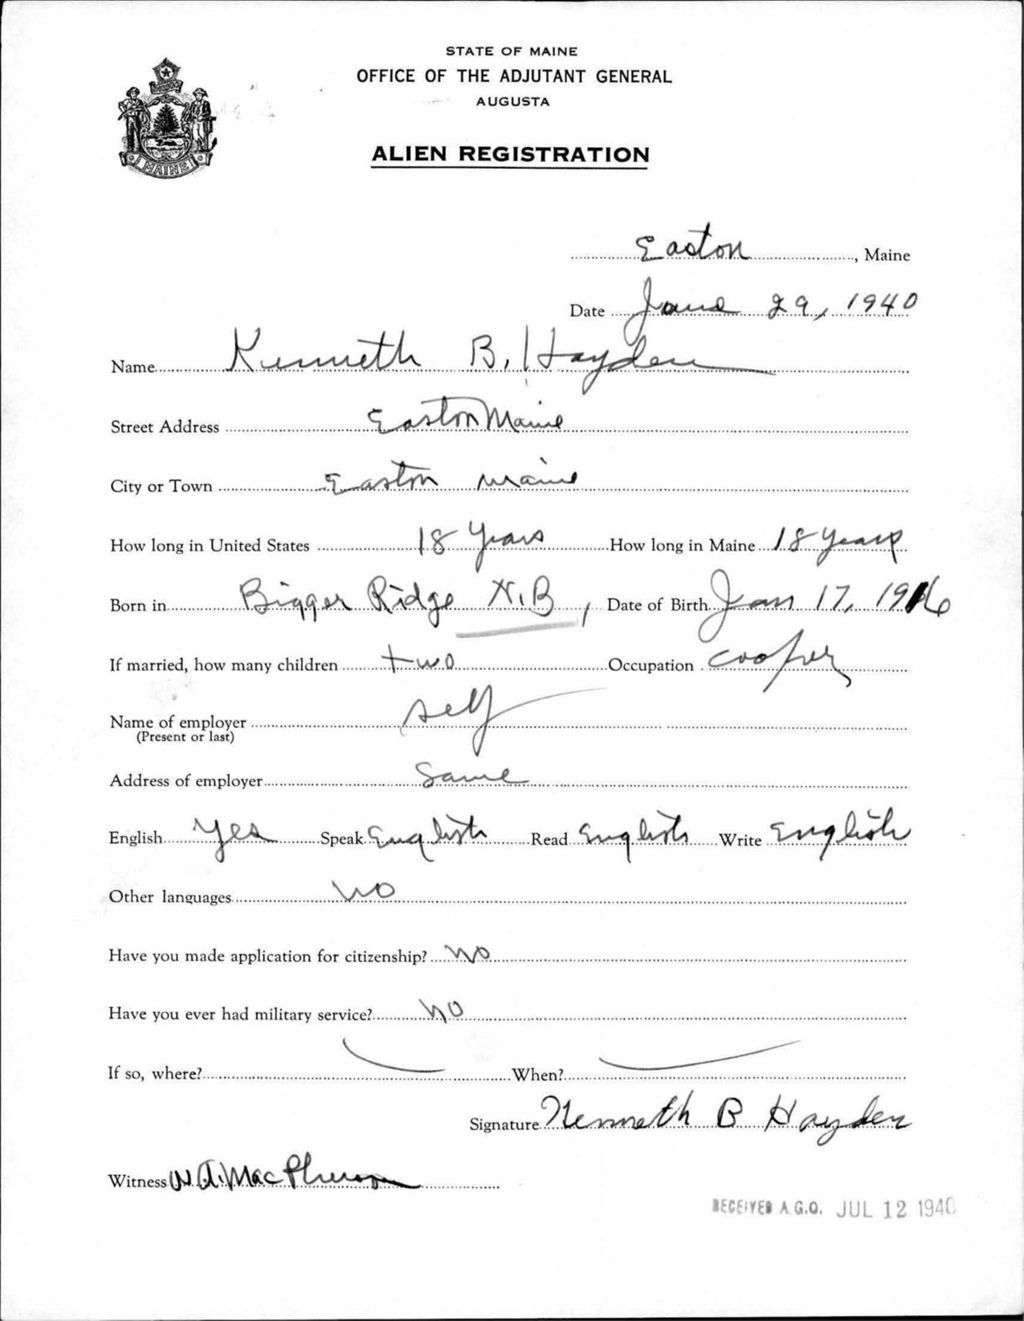 STATE OF MAINE
OFFICE OF THE ADJUTANT GENERAL
AUGUSTA
ALIEN REGISTRATION
MAINE
Easton, Maine
Date June 29, 1940
Name Kenneth B. Hayden
Street Address Easton Maine
City or Town Easton Maine
How long in United States 18 Years How long in Maine 18 years
Born in Bigger Ridge N.B, Date of Birth Jan 17, 1916
If married, how many children two Occupation cooper
Name of employer self
(Present or last)
Address of employer Same
English Yes Speak English Read English Write English
Other languages No
Have you made application for citizenship? No
Have you ever had military service? No
If so, where? When?
Signature Kenneth B Hayden
Witness MacPherson
RECEIVED A.G.O. JUL 12 1940